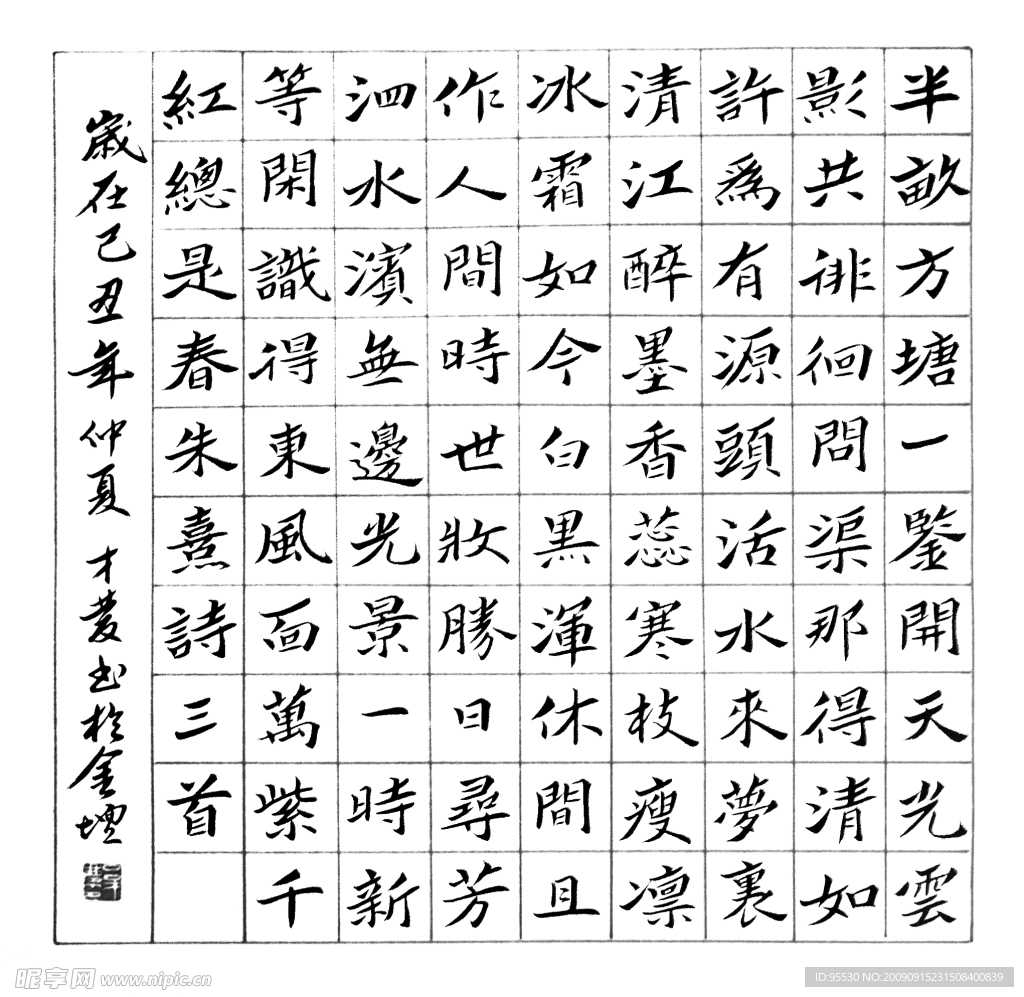 半畝方塘一鑒開天光雲
影共徘徊問渠那得清如
許爲有源頭活水來夢裏
清江醉墨香蕊寒枝瘦凛
冰霜如今白黑渾休間且
作人間時世妝勝日尋芳
泗水濱無邊光景一時新
等閑識得東風面萬紫千
紅總是春朱熹詩三首
歲在己丑年仲夏 才發书於金壇
昵享网 www.nipic.cn
ID:95530 NO:20090915231508400839